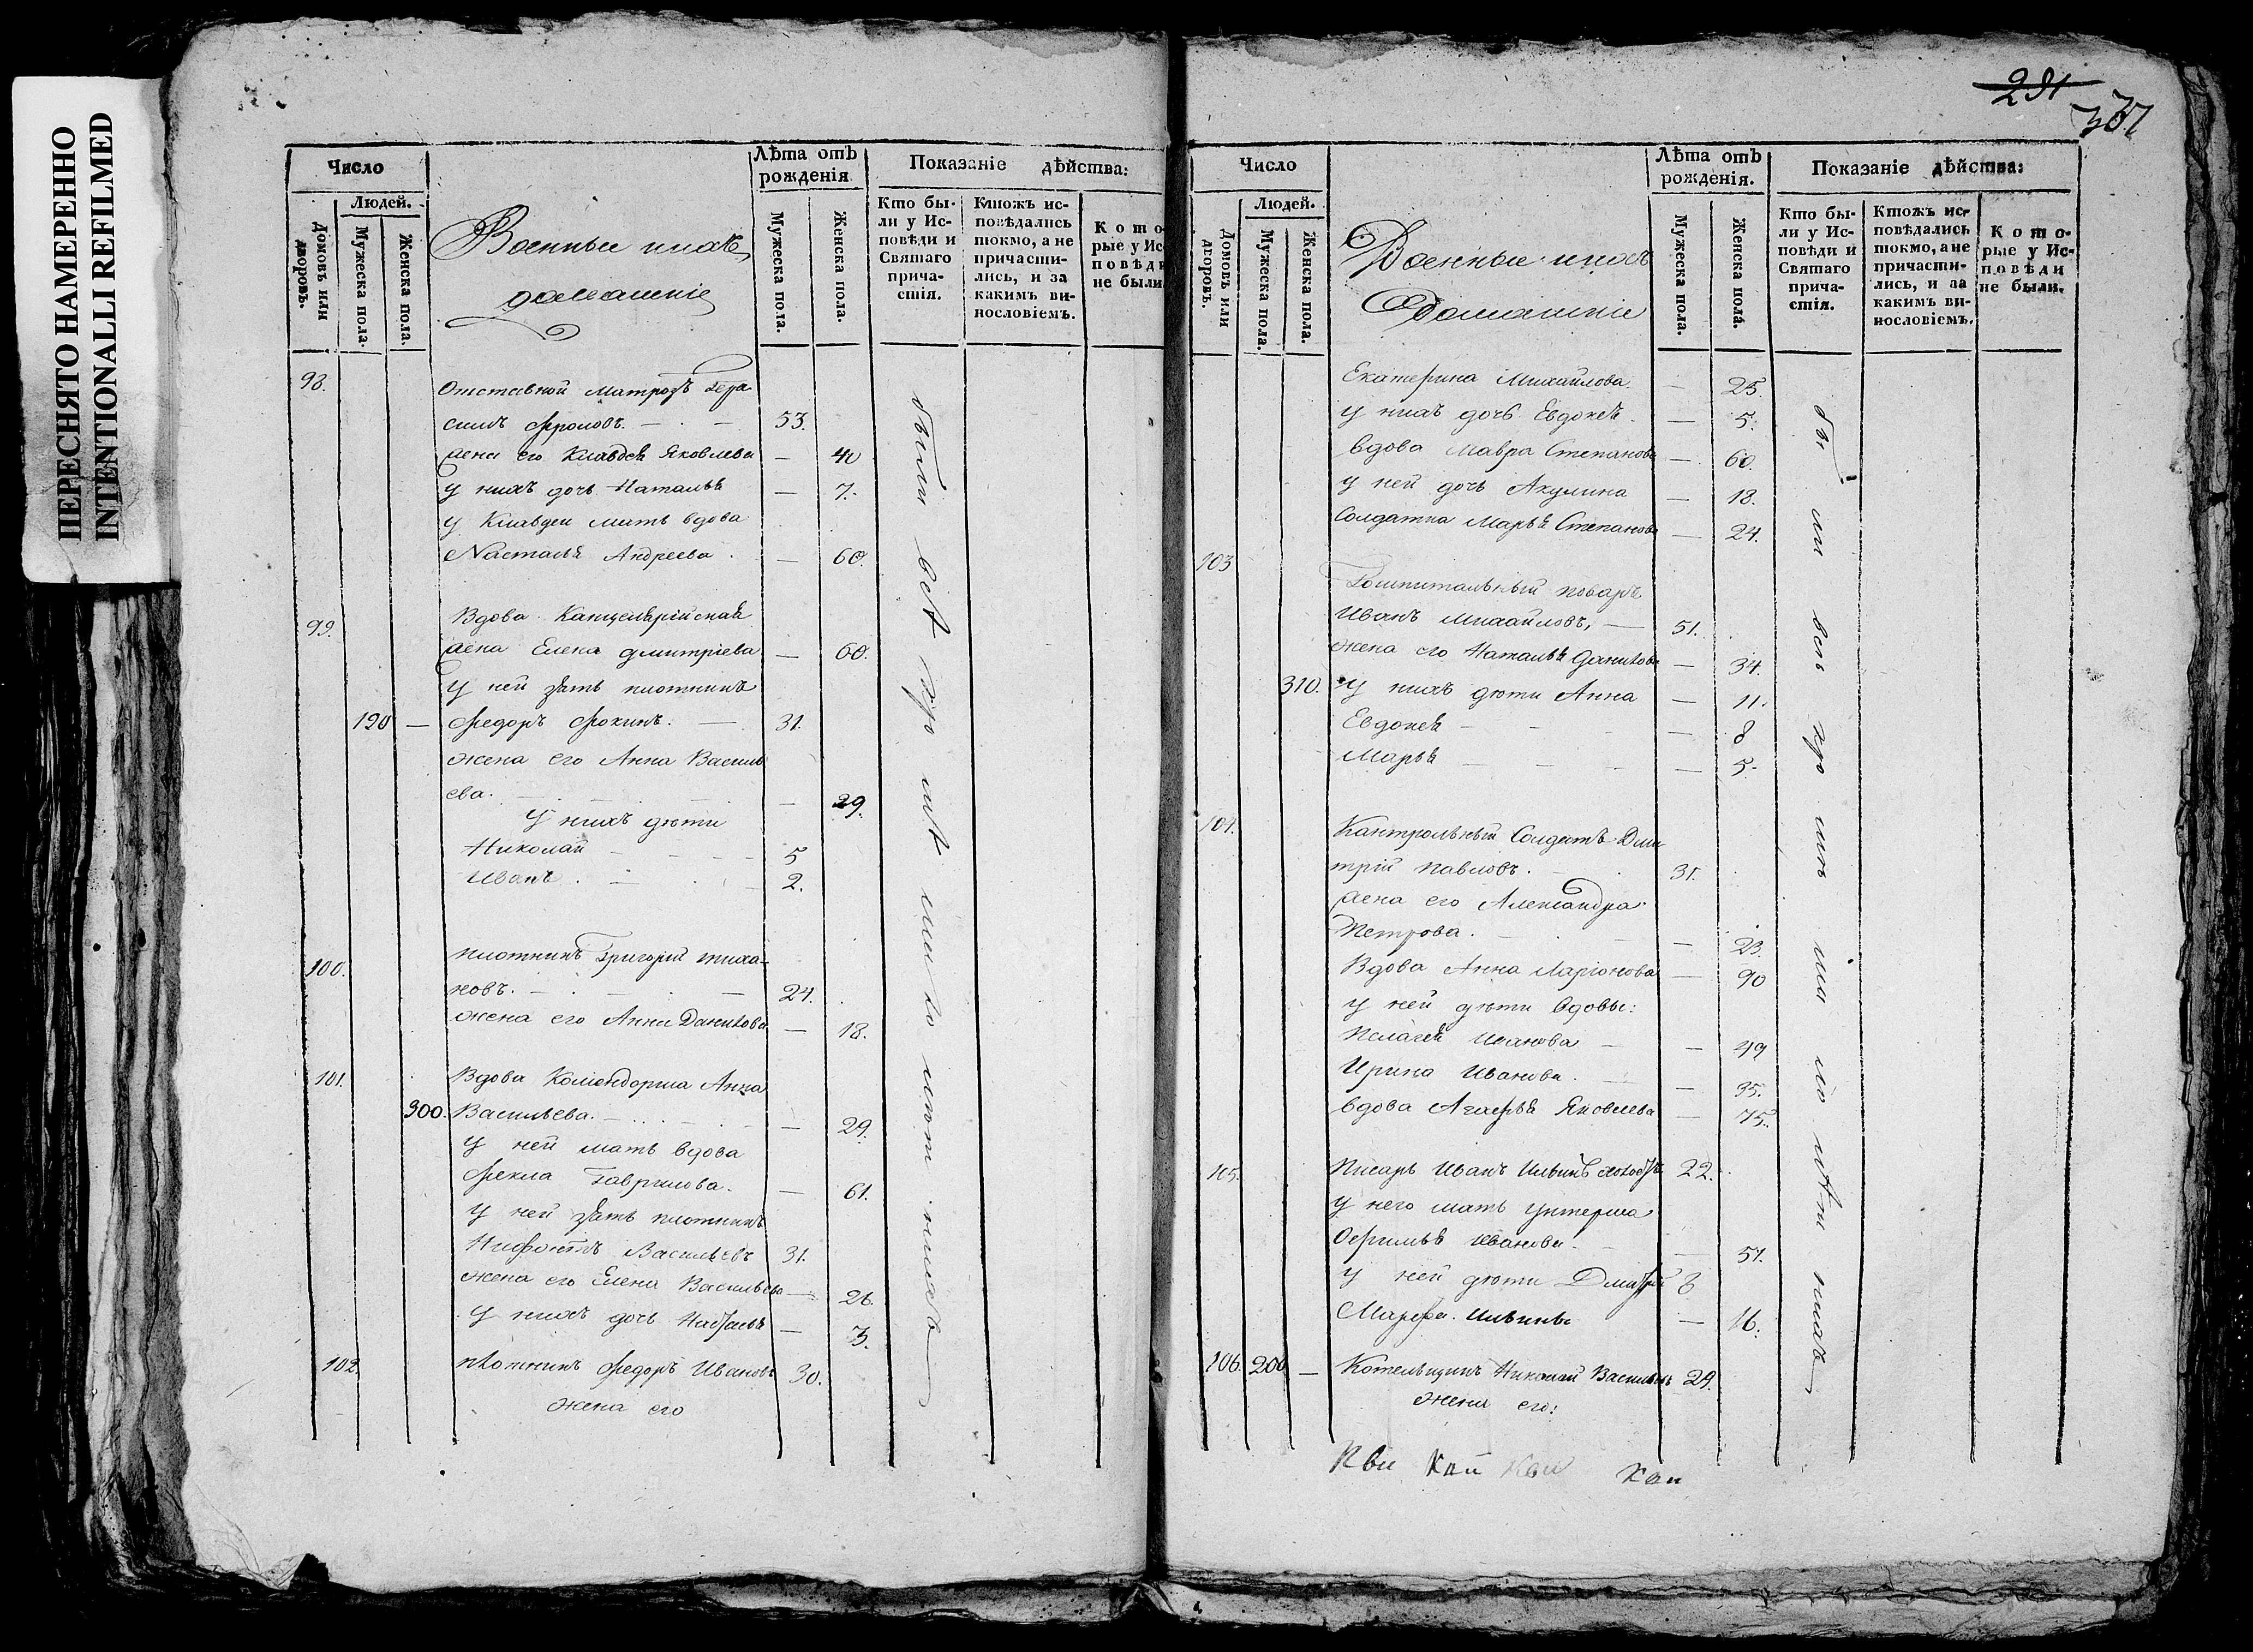 ПЕРЕСНЯТО НАМЕРЕННО
INTENTIONALLI REFILMED
Число
Лѣта отъ рожденія
Показаніе дѣйства:
Людей.
Домовъ или дворовъ.
Мужеска пола.
Женска пола.
Военные и ихъ
домашніе
Мужеска пола.
Женска пола.
Кто бы-
ли у Ис-
повѣди и
Святаго
прича-
стія.
Ктожъ ис-
повѣдались
токмо, а не
причасти-
лись, и за
какимъ ви-
нословіемъ.
Кото
рые у Ис
повѣди
не были.
98.
Отставной Матрозъ Гера-
симъ Фроловъ. — 53.
жена его Клавдея Яковлева — 40
У нихъ дочь Наталья — 7.
У Клавдеи мать вдова
Наталья Андреева — 60.
99.
Вдова Канцелярійская
жена Елена Дмитріева — 60.
У ней зять плотникъ
190 — Федоръ Фокинъ. — 31.
жена его Анна Василь
ева. — 29.
У нихъ дѣти
Николай — 5
Иванъ — 2.
100.
плотникъ Григорій тиха-
новъ. — 24.
жена его Анна Данилова — 18.
101.
Вдова Комендорша Анна
300. Васильева. — 29.
У ней мать вдова
Фекла Гаврилова. — 61.
У ней зять плотникъ
Нифонтъ Васильевъ 31.
жена его Елена Васильева — 26.
У нихъ дочь — 3.
102.
плотникъ Федоръ Ивановъ 30.
жена его
были всѣ
281
337
Число
Лѣта отъ рожденія.
Показаніе дѣйства:
Людей.
Домовъ или дворовъ.
Мужеска пола.
Женска пола.
Военные и ихъ
Домашніе
Мужеска пола.
Женска пола.
Кто бы-
ли у Ис-
повѣди и
Святаго
прича-
стія.
Ктожъ ис-
повѣдались
токмо, а не
причасти-
лись, и за
какимъ ви-
нословіемъ.
Кото-
рые у Ис-
повѣди
не были.
Екатерина Михайлова — 25.
У нихъ дочь Евдокея — 5.
вдова Мавра Степанова — 60.
У ней дочь Акулина — 18.
Солдатка Марья Степанова — 24.
103
Гошпитальный поваръ
Иванъ Михайловъ, — 51.
жена его Наталья Данилова — 34.
310. У нихъ дѣти Анна — 11.
Евдокея — 8
Марья — 5.
104.
Кантрольный Солдатъ Дми
трій Павловъ. 31.
жена его Александра
Петрова. — 23.
Вдова Анна Ларіонова — 90
У ней дѣти вдовы:
Пелагея Иванова — 49
Ирина Иванова. — 35.
вдова Агафья Яковлева — 75.
105.
Писарь Иванъ Ильинъ холостъ 22.
У него мать унтерша
Иванова. — 51.
У ней дѣти Дмитрій 8
Марфа. Ильины — 16.
106. 200 — Котельщикъ Николай Васильевъ 29.
жена его: